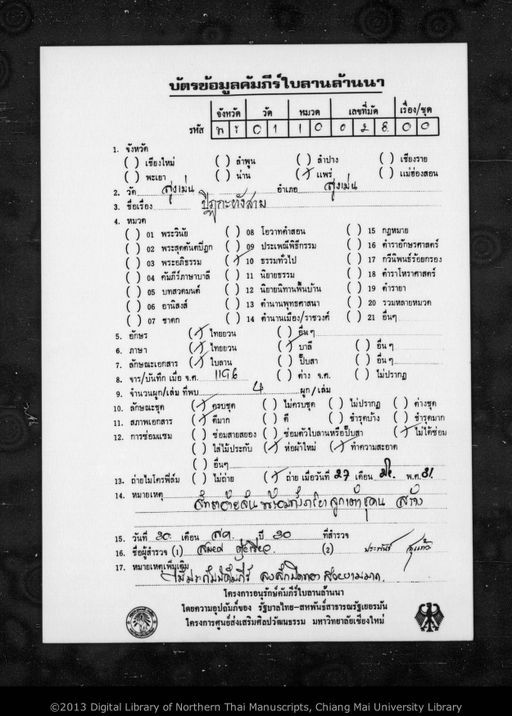 บัตรข้อมูลคัมภีร์ใบลานล้านนา
จังหวัด วัด หมวด เลขที่มัด เรื่อง/ชุด
รหัส พ ร 0 1 1 0 0 2 8 0 0
1. จังหวัด
( ) เชียงใหม่ ( ) ลำพูน ( ) ลำปาง ( ) เชียงราย
( ) พะเยา ( ) น่าน (/) แพร่ ( ) แม่ฮ่องสอน
2. วัด สูงเม่น อำเภอ สูงเม่น
3. ชื่อเรื่อง ปิฎกะทังสาม
4. หมวด
( ) 01 พระวินัย ( ) 08 โอวาทคำสอน ( ) 15 กฎหมาย
( ) 02 พระสุตตันตปิฎก ( ) 09 ประเพณีพิธีกรรม ( ) 16 ตำราอักษรศาสตร์
( ) 03 พระอภิธรรม (/) 10 ธรรมทั่วไป ( ) 17 กวีนิพนธ์ร้อยกรอง
( ) 04 คัมภีร์ภาษาบาลี ( ) 11 นิยายธรรม ( ) 18 ตำราโหราศาสตร์
( ) 05 บทสวดมนต์ ( ) 12 นิยายนิทานพื้นบ้าน ( ) 19 ตำรายา
( ) 06 อานิสงส์ ( ) 13 ตำนานพุทธศาสนา ( ) 20 รวมหลายหมวด
( ) 07 ชาดก ( ) 14 ตำนานเมือง/ราชวงศ์ ( ) 21 อื่นๆ
5. อักษร (/) ไทยยวน ( ) อื่นๆ
6. ภาษา (/) ไทยยวน (/) บาลี ( ) อื่นๆ
7. ลักษณะเอกสาร (/) ใบลาน ( ) พับสา ( ) อื่นๆ
8. จาร/บันทึก เมื่อ จ.ศ. 1196 ( ) ค่าง จ.ศ. ( ) ไม่ปรากฏ
9. จำนวนผูก/เล่ม ที่พบ ผูก/เล่ม
10. ลักษณะชุด (/) ครบชุด ( ) ไม่ครบชุด ( ) ไม่ปรากฏ ( ) ค่างชุด
11. สภาพเอกสาร (/) ดีมาก ( ) ดี ( ) ชำรุดบ้าง ( ) ชำรุดมาก
12. การซ่อมแซม ( ) ซ่อมสายสยอง ( ) ซ่อมตัวใบลานหรือปั๊บสา (/) ไม่ได้ซ่อม
( ) ใส่ไม้ประกับ (/) ห่อผ้าใหม่ (/) ทำความสะอาด
( ) อื่นๆ
13. ถ่ายไมโครฟิล์ม ( ) ไม่ถ่าย (/) ถ่าย เมื่อวันที่ 27 เดือน พ.ศ. 31
14. หมายเหตุ
15. วันที่ 30 เดือน ปี 30 ที่สำรวจ
16. ชื่อผู้สำรวจ (1) (2) ประพันธ์
17. หมายเหตุเพิ่มเติม
โครงการอนุรักษ์คัมภีร์ใบลานล้านนา
โดยความอุปถัมภ์ของ รัฐบาลไทย-สหพันธ์สาธารณรัฐเยอรมัน
โครงการศูนย์ส่งเสริมศิลปวัฒนธรรม มหาวิทยาลัยเชียงใหม่
©2013 Digital Library of Northern Thai Manuscripts, Chiang Mai University Library